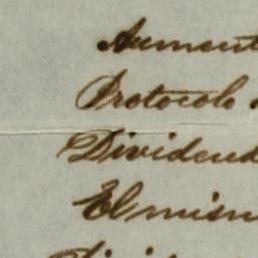 Aument
Protocolo
Dividend
El mism